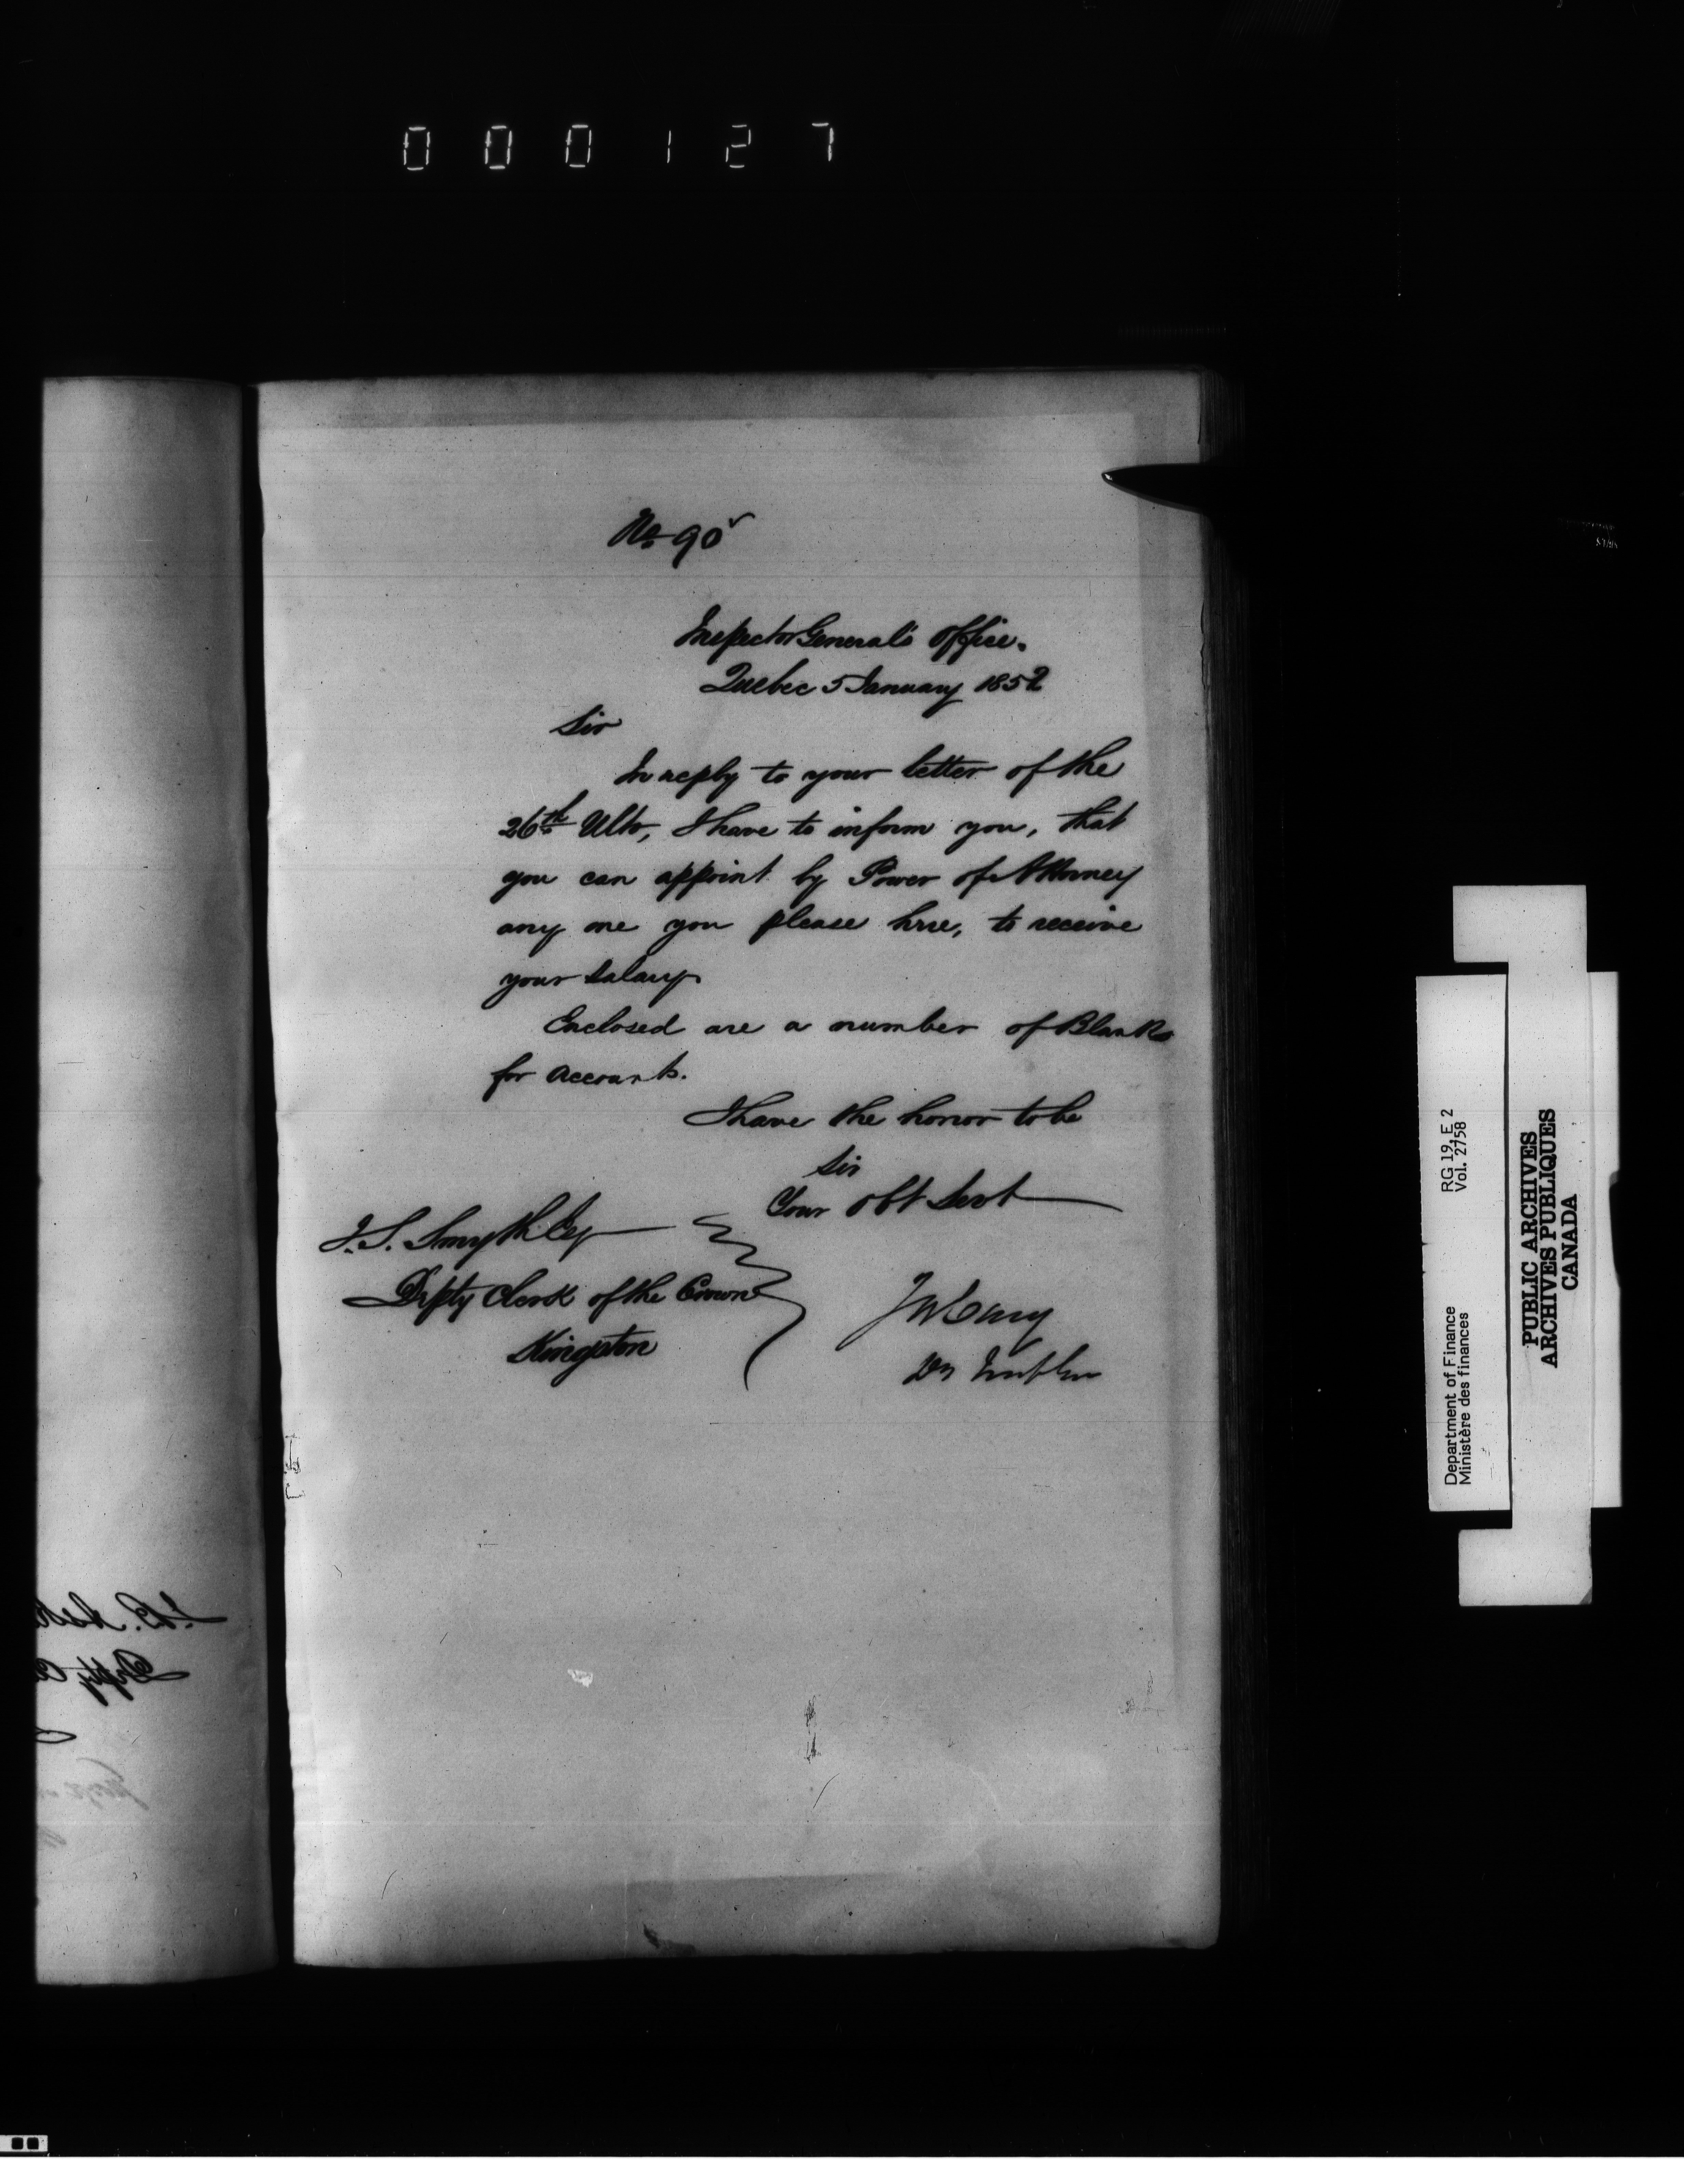 000127
No 90
Inspector General's Office.
Quebec 5 January 1852
Sir
In reply to your letter of the
26th Ulto, I have to inform you, that
you can appoint by Power of Attorney
any one you please here, to receive
your Salary
Enclosed are a number of Blanks
for Accounts.
I have the honor to be
Sir
Your Obt Servt
J. S. Smyth Esq
Depty Clerk of the Crown
Kingston
J W Cary
Dy
RG 19, E 2
Vol. 2758
Department of Finance
Ministère des finances
PUBLIC ARCHIVES
ARCHIVES PUBLIQUES
CANADA